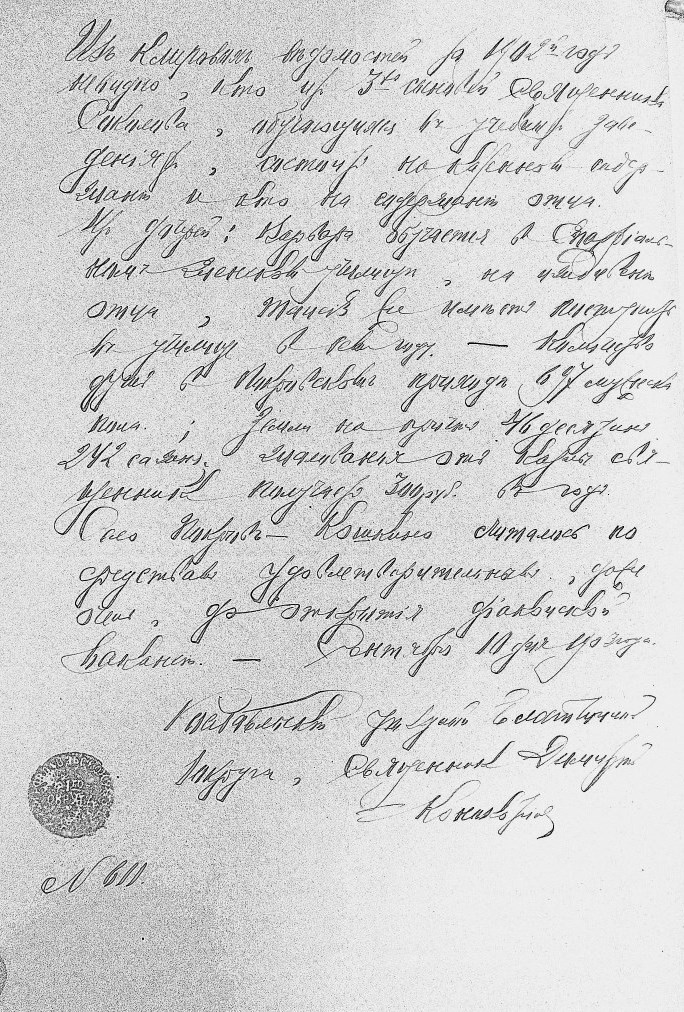 Изъ Клировыхъ вѣдомостей за 1902й годъ
невидно, кто изъ 3хъ сыновей Священника
Соколова, обучающихся въ учебныхъ заве-
денiяхъ, состоитъ на казенномъ содер-
жанiи и кто на содержанiи отца.
Изъ дочерей: Варвара обучается въ Епархiаль-
номъ Женскомъ училищѣ, на
отца, Таисiя не имѣется поступить
въ училище въ семъ году. — Количество
душъ въ Покровскомъ приходѣ 697 мужеска
пола.; Земли на причтъ 46 десятинъ
242 сажени. Жалованья отъ казны свя-
щенникъ получаетъ 300 руб. въ годъ.
Село Покровъ — Кошкино считалось по
средствамъ удовлетворительнымъ, даже
до открытiя дiаконской
вакансiи. — Сентября 10 дня 1903 года.
Благочинный
Округа, Священникъ Димитрiй
N 611.